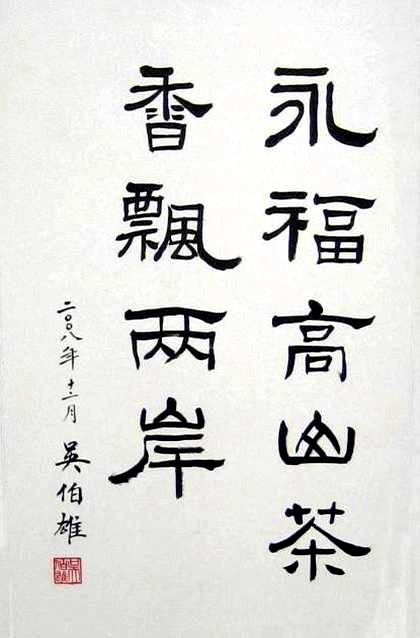 永福高山茶
香飄两岸
二〇〇八年十二月 吳伯雄